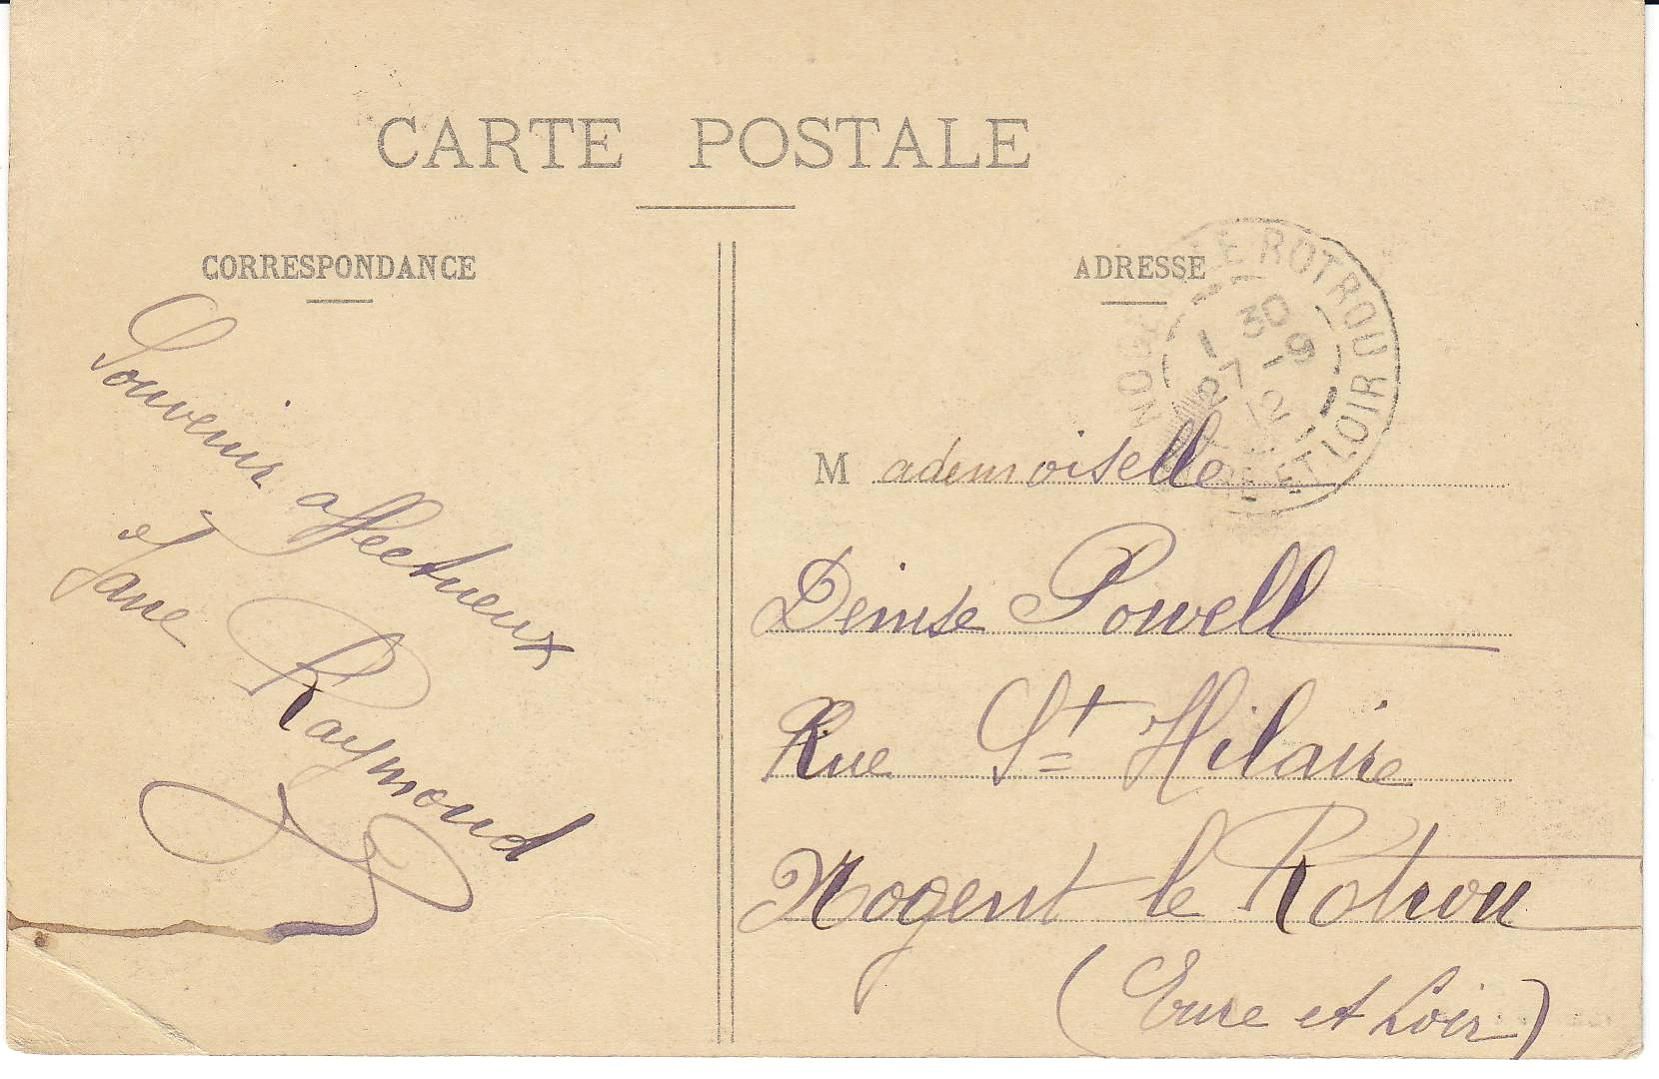 CARTE POSTALE
CORRESPONDANCE
Souvenir affectueux
Jane Raymond
ADRESSE
NOGENT LE ROTROU
EURE ET LOIR
1 30
27 - 9
12
Mademoiselle
Denise Powell
Rue St Hilaire
Nogent le Rotrou
(Eure et Loir)